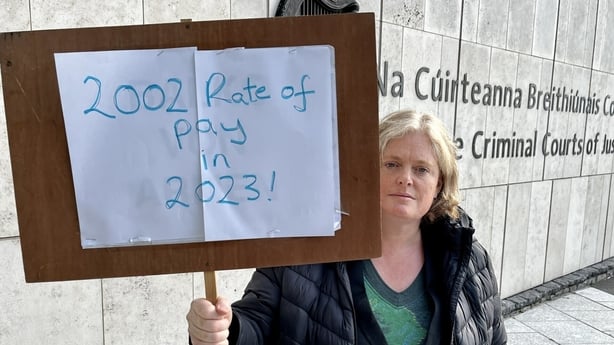 2002 Rate of
pay
in
2023!
Na Cúirteanna Breithiúnais C
Criminal Courts of Jus